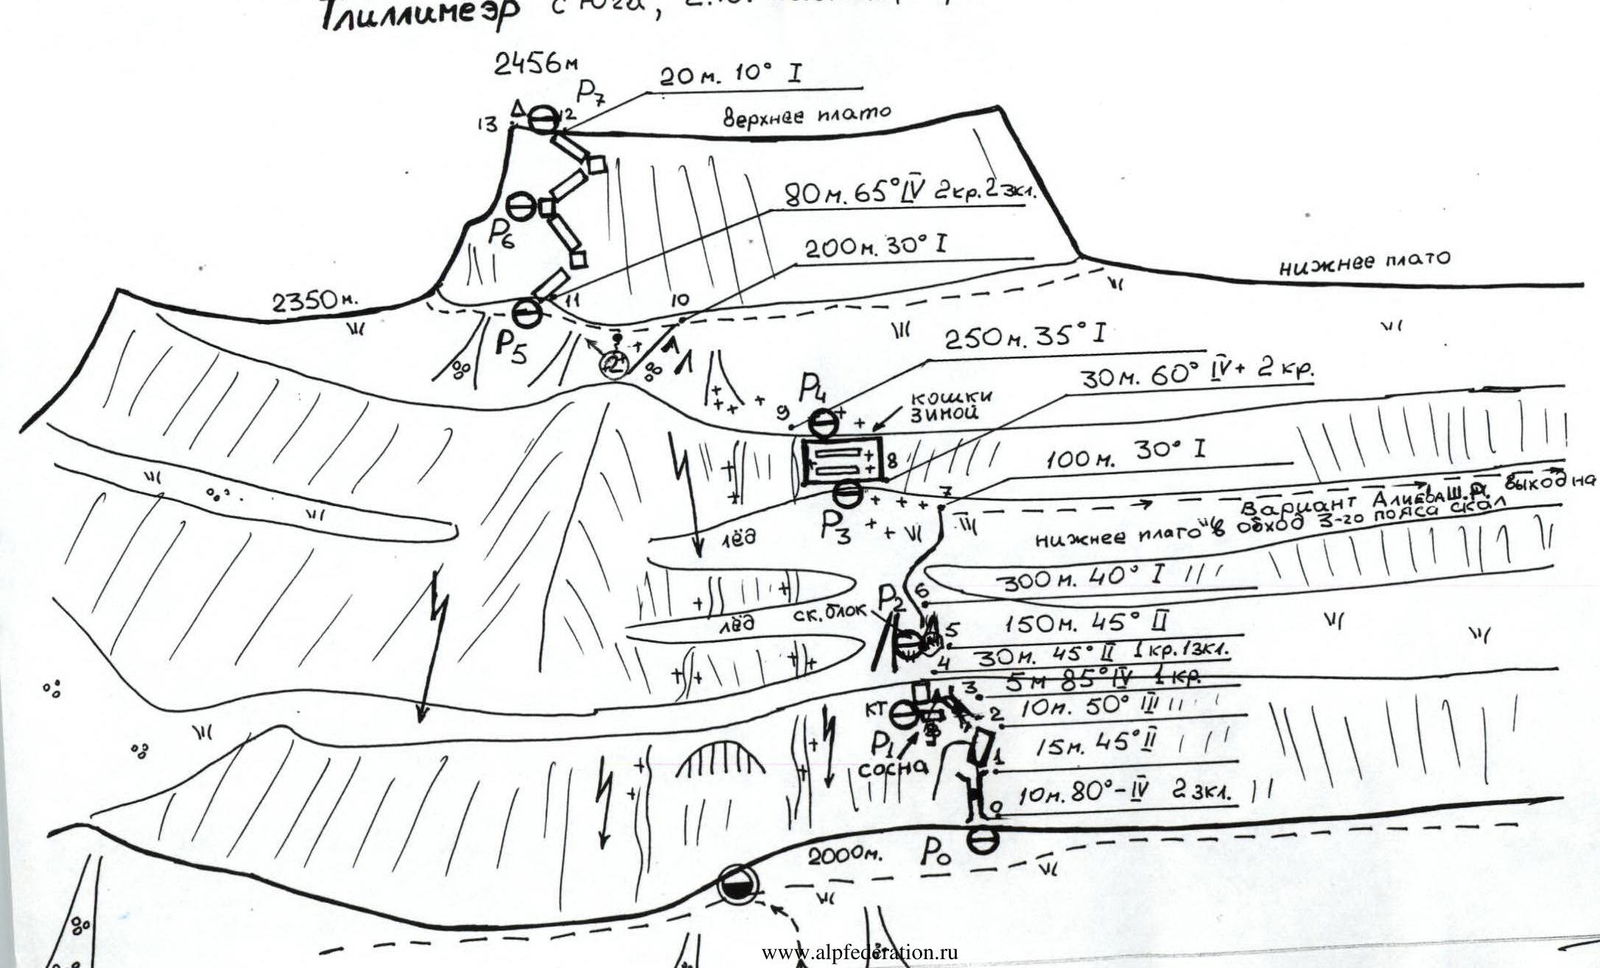 Тлиллимеэр с юга,
2456м
P7
20м. 10° I
13
12
верхнее плато
80м. 65° IV 2кр. 2зкл.
P6
200м. 30° I
нижнее плато
2350м.
11
10
P5
"2"
250м. 35° I
30м. 60° IV+ 2 кр.
P4
кошки
зимой
9
8
100м. 30° I
7
P3
Вариант Алиева Ш.Д. выход на
нижнее плато в обход 3-го пояса скал
лёд
300м. 40° I
6
P2
ск. блок
лёд
5
150м. 45° II
4
30м. 45° II 1кр. 1зкл.
3
5м 85° IV 1кр.
КТ
2
10м. 50° III
P1
сосна
1
15м. 45° II
0
10м. 80° - IV 2зкл.
2000м.
P0
www.alpfederation.ru